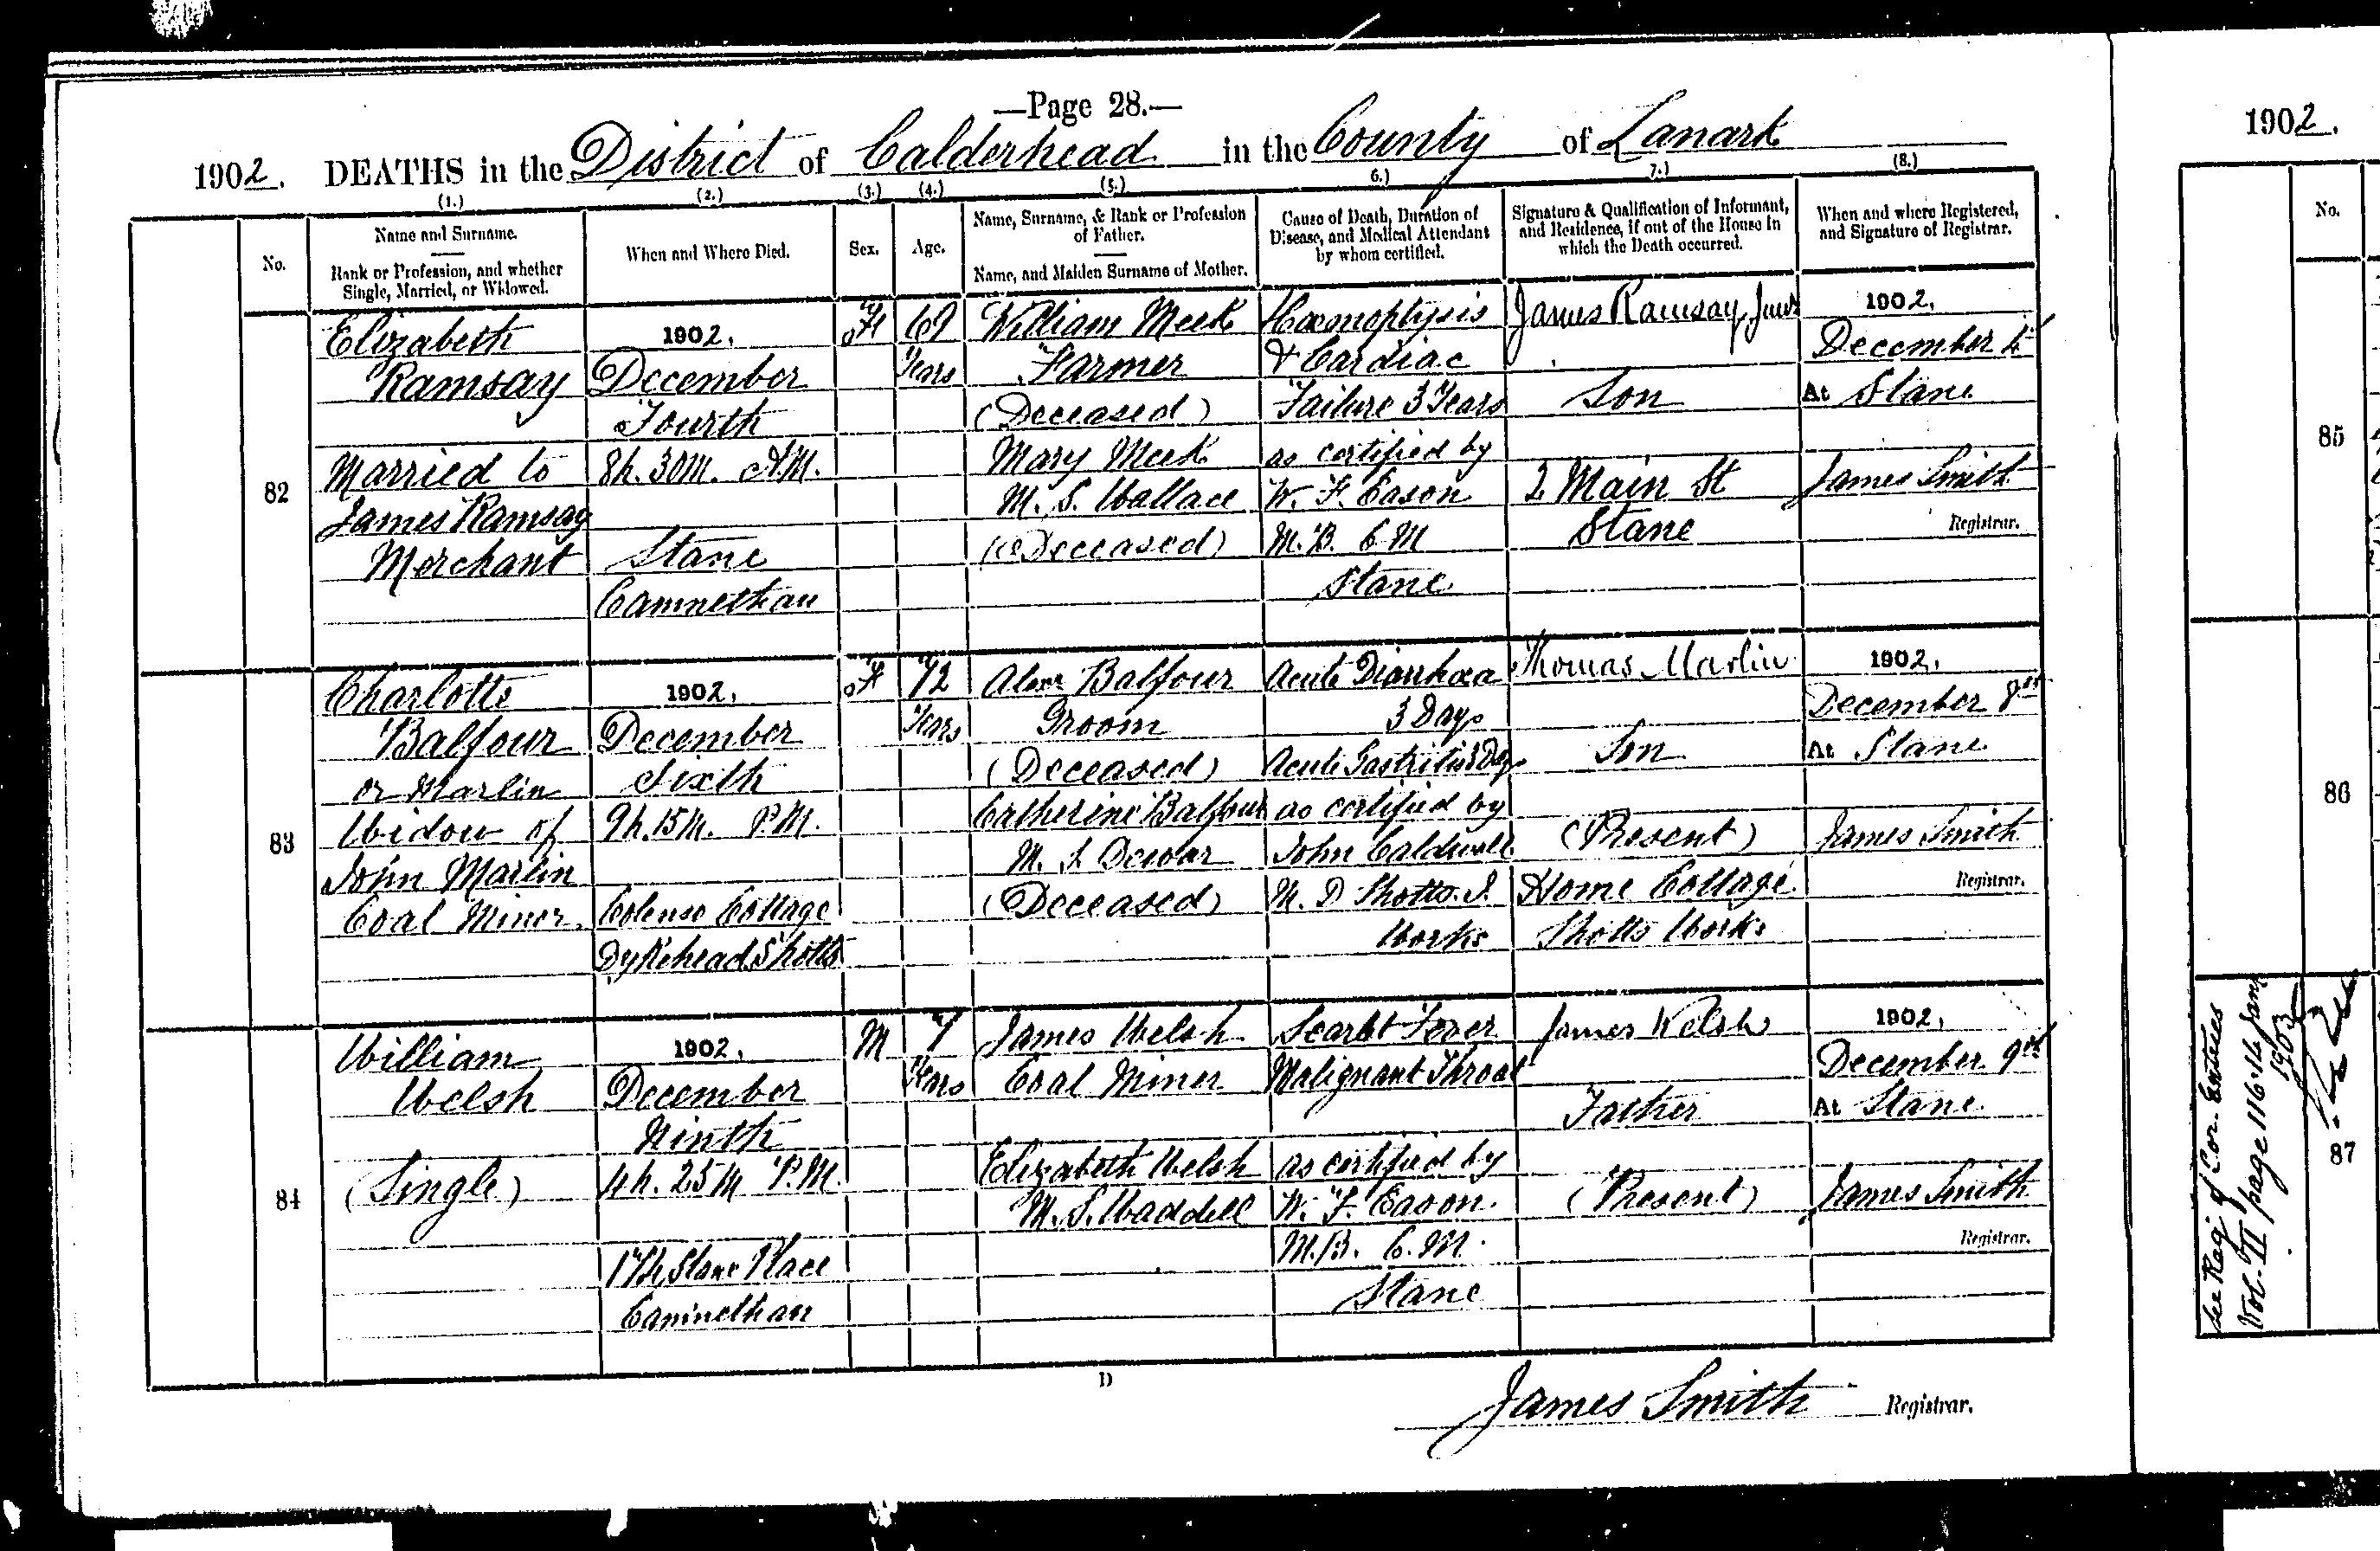 —Page 28.—
1902. DEATHS in the District of Calderhead in the County of Lanark
(1.) (2.) (3.) (4.) (5.) 6.) 7.) (8.)
No.
Name and Surname.
Rank or Profession, and whether
Single, Married, or Widowed.
When and Where Died.
Sex.
Age.
Name, Surname, & Rank or Profession
of Father.
Name, and Maiden Surname of Mother.
Cause of Death, Duration of
Disease, and Medical Attendant
by whom certified.
Signature & Qualification of Informant,
and Residence, if out of the House in
which the Death occurred.
When and where Registered,
and Signature of Registrar.
82
Elizabeth
Ramsay
Married to
James Ramsay
Merchant
1902.
December
Fourth
8h. 30m. A.M.
Stane
Cambnethan
F
Years
William Meek
Farmer
(Deceased)
Mary Meek
M. S. Wallace
(Deceased)
Hæmoptysis
& Cardiac
Failure 3 Years
as certified by
W. F. Eason
M.B. C.M
Stane
James Ramsay Junr
Son
2 Main St
Stane
1902.
December 4
At Stane
James Smith
Registrar.
83
Charlotte
Balfour
or Marlin
Widow of
John Marlin
Coal Miner.
1902.
December
Sixth
9h. 15m. P.M.
Colenso Cottage
Dykehead Shotts
F
72
Years
Alexr Balfour
Groom
(Deceased)
Catherine Balfour
M. S Dewar
(Deceased)
Acute Diarrhœa
3 Days
Acute Gastritis 3 Days
as certified by
John Caldwell
M. D Shotts. I.
Works
Thomas Marlin
Son
(Present)
Home Cottage
Shotts Works
1902.
December 8th
At Stane
James Smith
Registrar.
84
William
Welsh
(Single)
1902.
December
Ninth
4h. 25m P.M.
Stane Place
Cambnethan
M
7
Years
James Welsh
Coal Miner
Elizabeth Welsh
M. S. Waddell
Scarlet Fever
Malignant Throat
as certified by
W. F. Eason.
M.B. C.M.
Stane
James Welsh
Father
(Present)
1902.
December 9th
At Stane
James Smith
Registrar.
D
James Smith Registrar.
1902.
No.
85
86
See Reg of Cor. Entries
Vol. II page 116. 14 Jany
1903
87